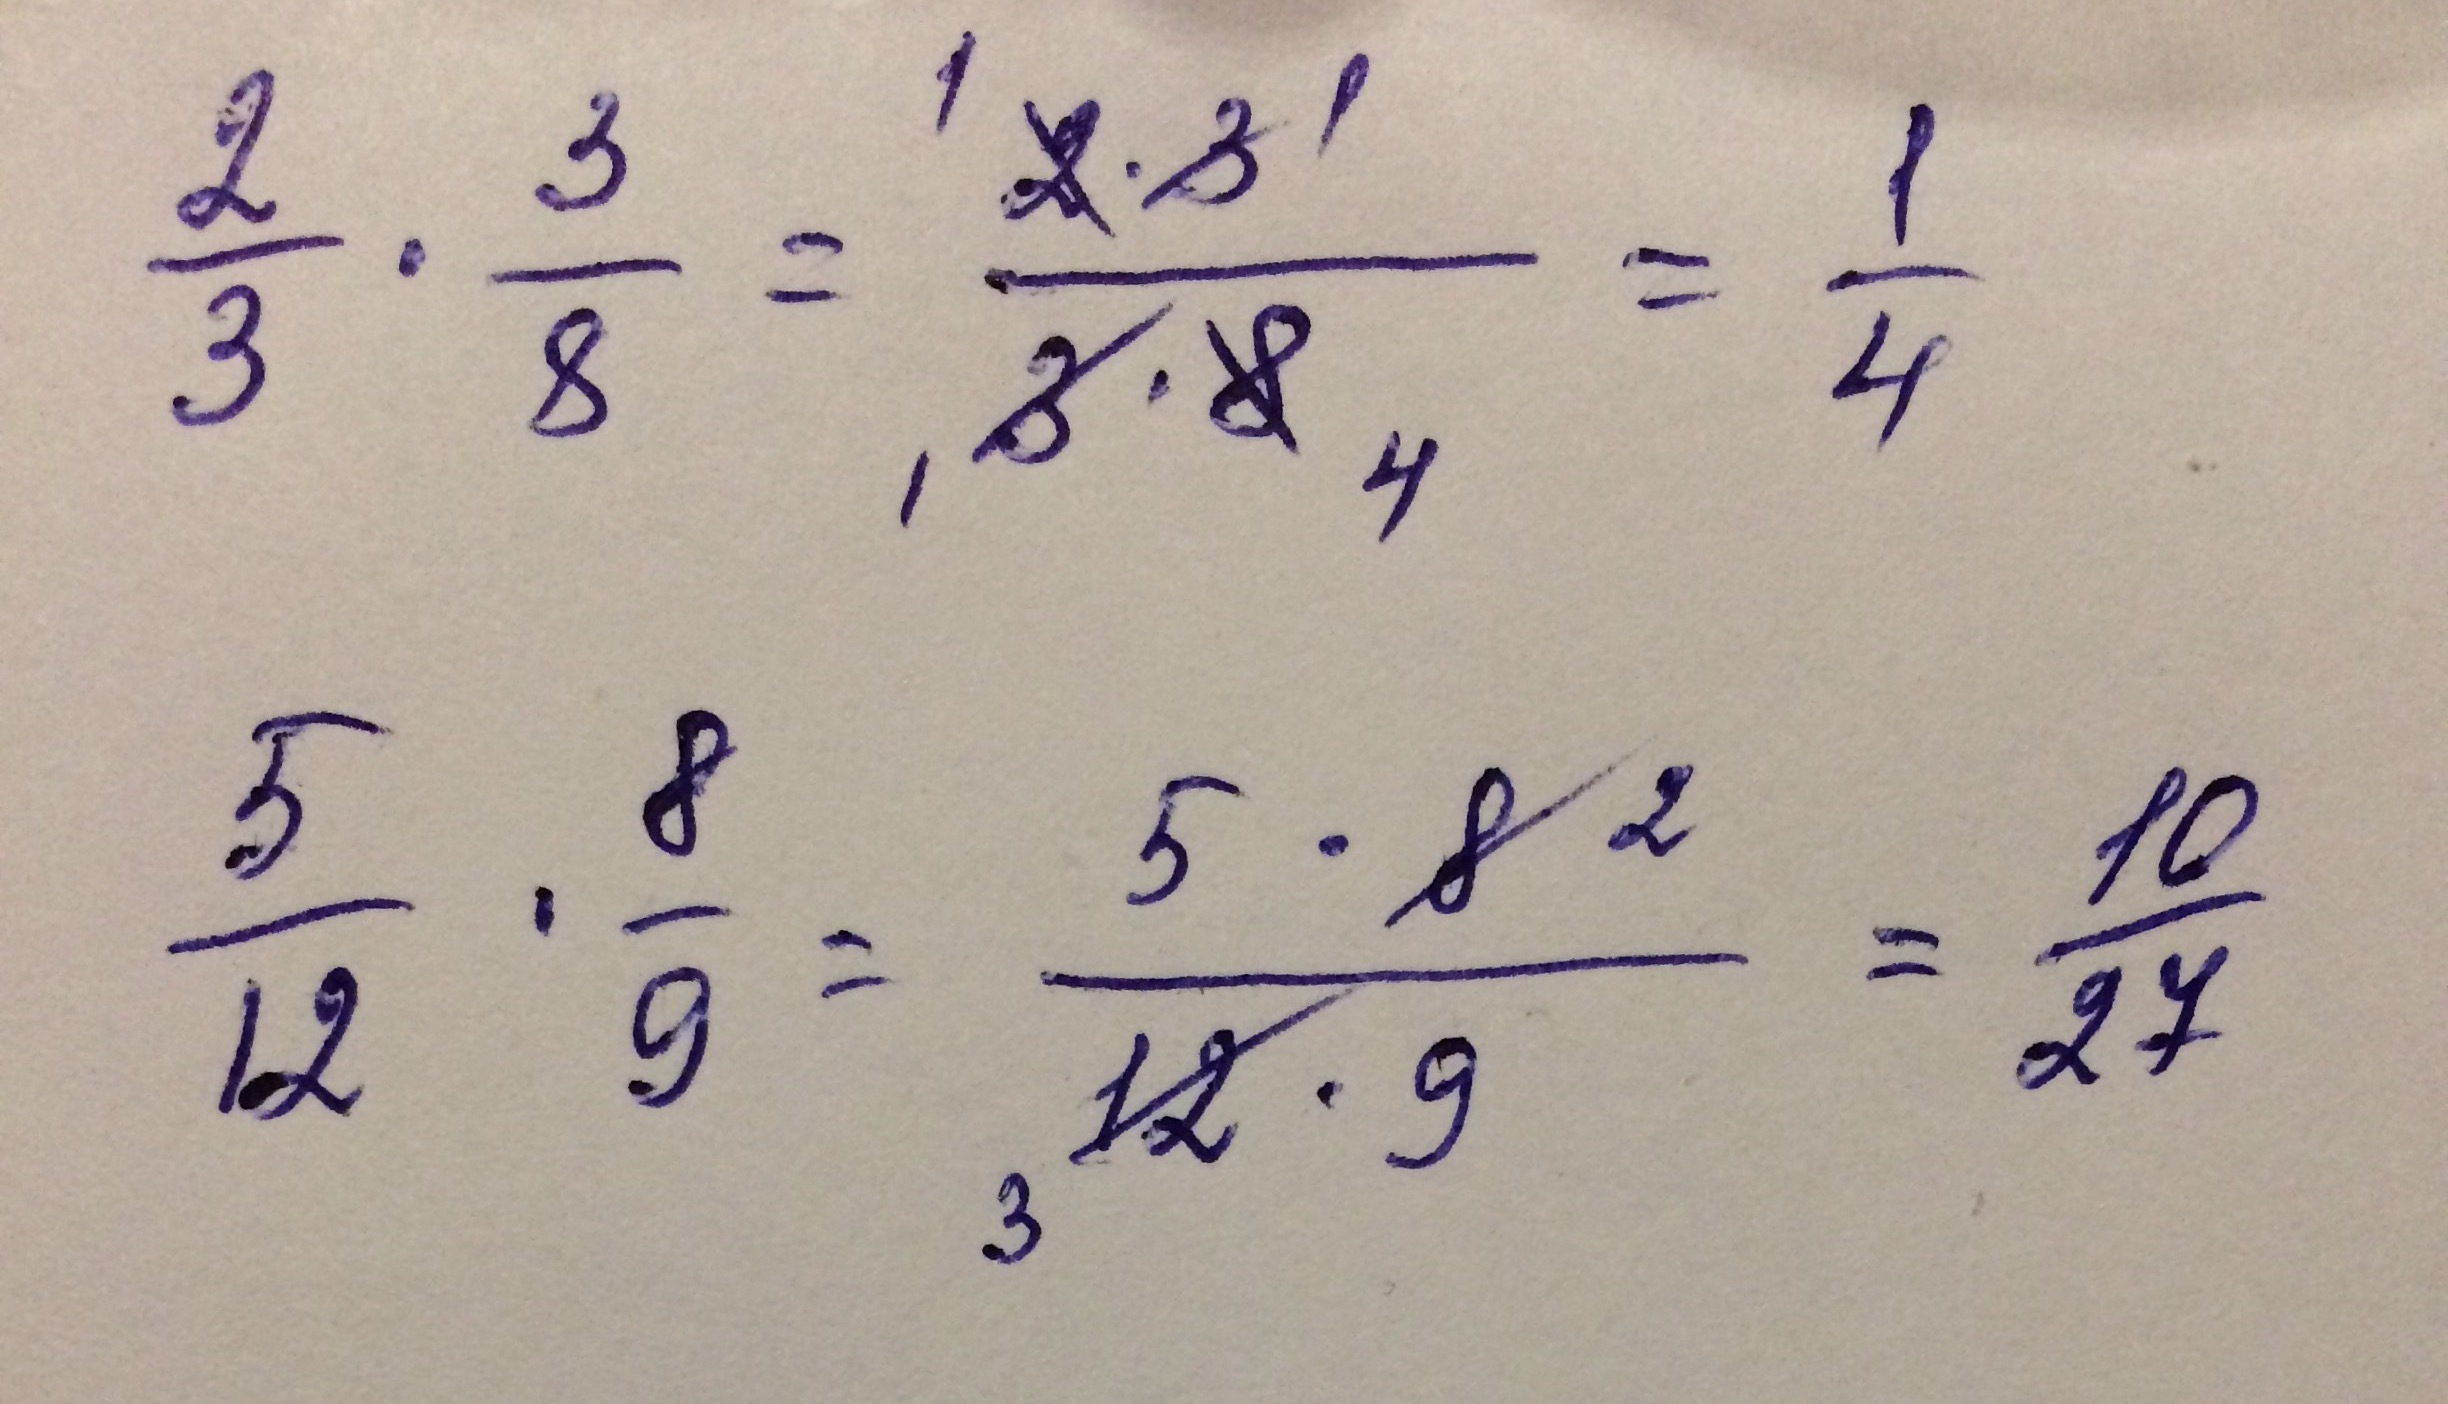 2/3 · 3/8 = ¹2 · 3¹ / ₁3 · 8₄ = 1/4
5/12 · 8/9 = 5 · 8² / ₃12 · 9 = 10/27